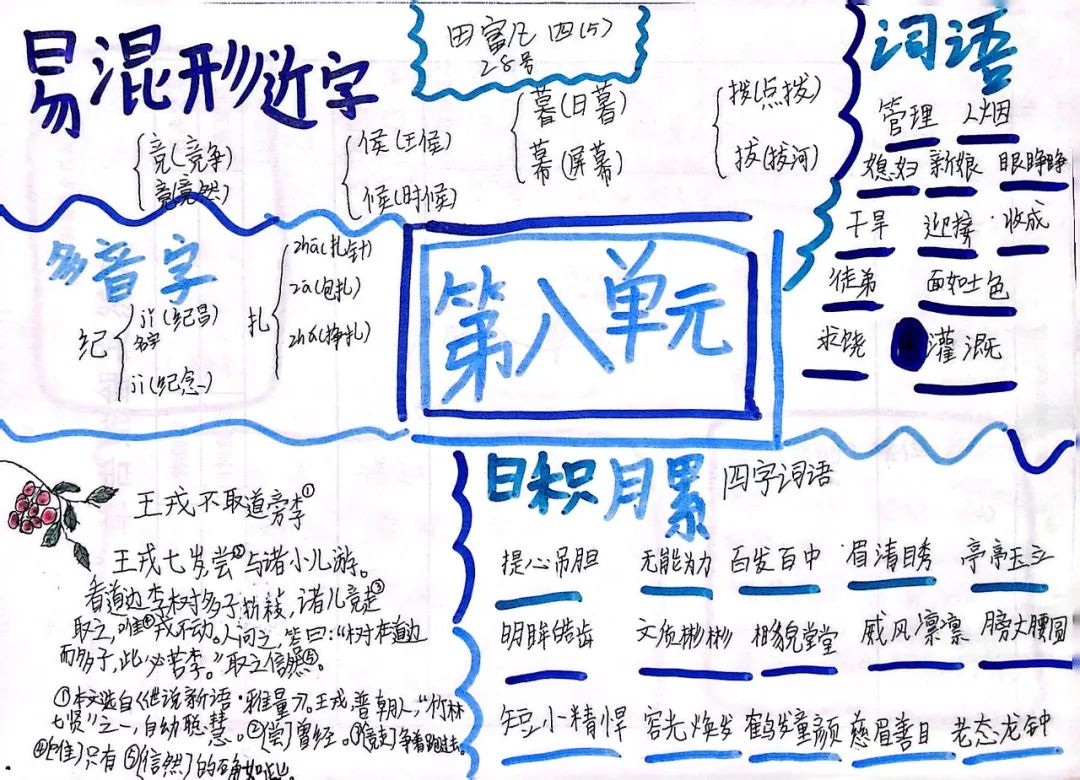 易混形近字
田富凡 四(5)
28号
竞(竞争)
竟(竟然)
侯(王侯)
候(时候)
暮(日暮)
幕(屏幕)
拨(点拨)
拔(拔河)
词语
管理 人烟
媳妇 新娘 眼睁睁
干旱 迎接 收成
徒弟 面如土色
求饶 灌溉
多音字
纪
jǐ(纪昌)
名字
jì(纪念)
扎
zhā(扎针)
zā(包扎)
zhá(挣扎)
第八单元
王戎不取道旁李①
王戎七岁,尝②与诸小儿游。
看道边李树多子折枝,诸儿竞走③
取之,唯④戎不动。人问之,答曰:“树在道边
而多子,此必苦李。”取之信然⑤。
①本文选自《世说新语·雅量》。王戎,晋朝人,“竹林
七贤”之一,自幼聪慧。②[尝]曾经。③[竞走]争着跑过去。
④[唯]只有⑤[信然]的确如此。
日积月累 四字词语
提心吊胆 无能为力 百发百中 眉清目秀 亭亭玉立
明眸皓齿 文质彬彬 相貌堂堂 威风凛凛 膀大腰圆
短小精悍 容光焕发 鹤发童颜 慈眉善目 老态龙钟